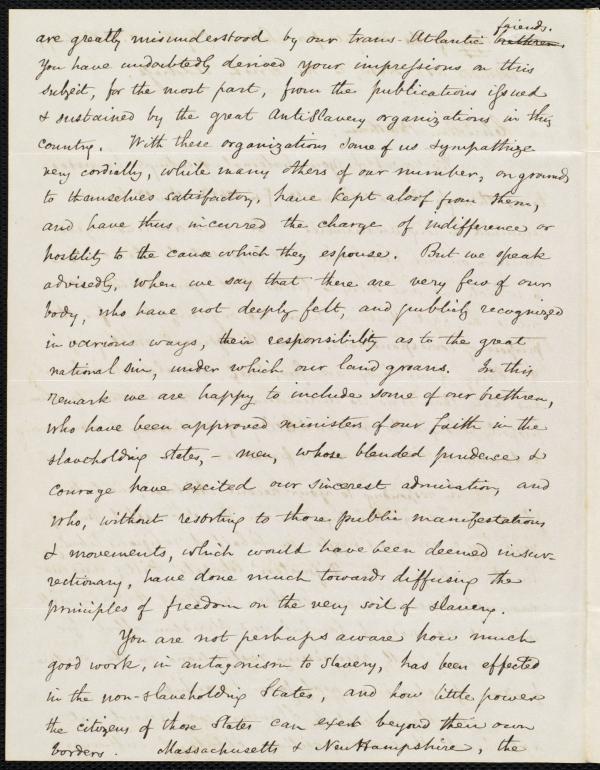 friends.
are greatly misunderstood by our trans-Atlantic brethren.
You have undoubtedly derived your impressions on this
subject, for the most part, from the publications issued
& sustained by the great AntiSlavery organizations in this
country. With these organizations some of us sympathize
very cordially, while many others of our number, on grounds
to themselves satisfactory, have kept aloof from them,
and have thus incurred the charge of indifference or
hostility to the cause which they espouse. But we speak
advisedly, when we say that there are very few of our
body, who have not deeply felt, and publicly recognized
in various ways, their responsibility as to the great
national sin, under which our land groans. In this
remark we are happy to include some of our brethren,
who have been approved ministers of our faith in the
slaveholding states, – men, whose blended prudence &
courage have excited our sincerest admiration, and
who, without resorting to those public manifestations
& movements, which would have been deemed insur-
rectionary, have done much towards diffusing the
principles of freedom on the very soil of slavery.
You are not perhaps aware how much
good work, in antagonism to slavery, has been effected
in the non-slaveholding States, and how little power
the citizens of those States can exert beyond their own
borders. Massachusetts & New Hampshire, the